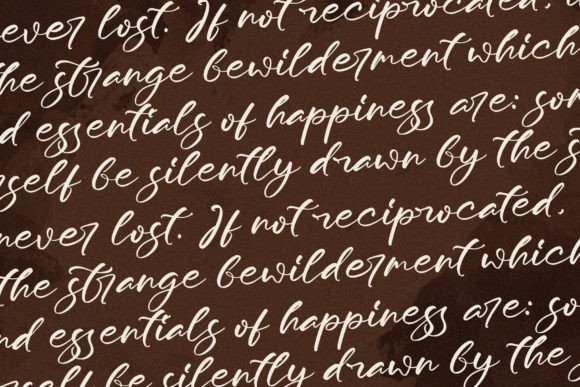 never lost. If not reciprocated,
the strange bewilderment which
nd essentials of happiness are: som
rself be silently drawn by the s
never lost. If not reciprocated,
the strange bewilderment which
nd essentials of happiness are: so
rself be silently drawn by the